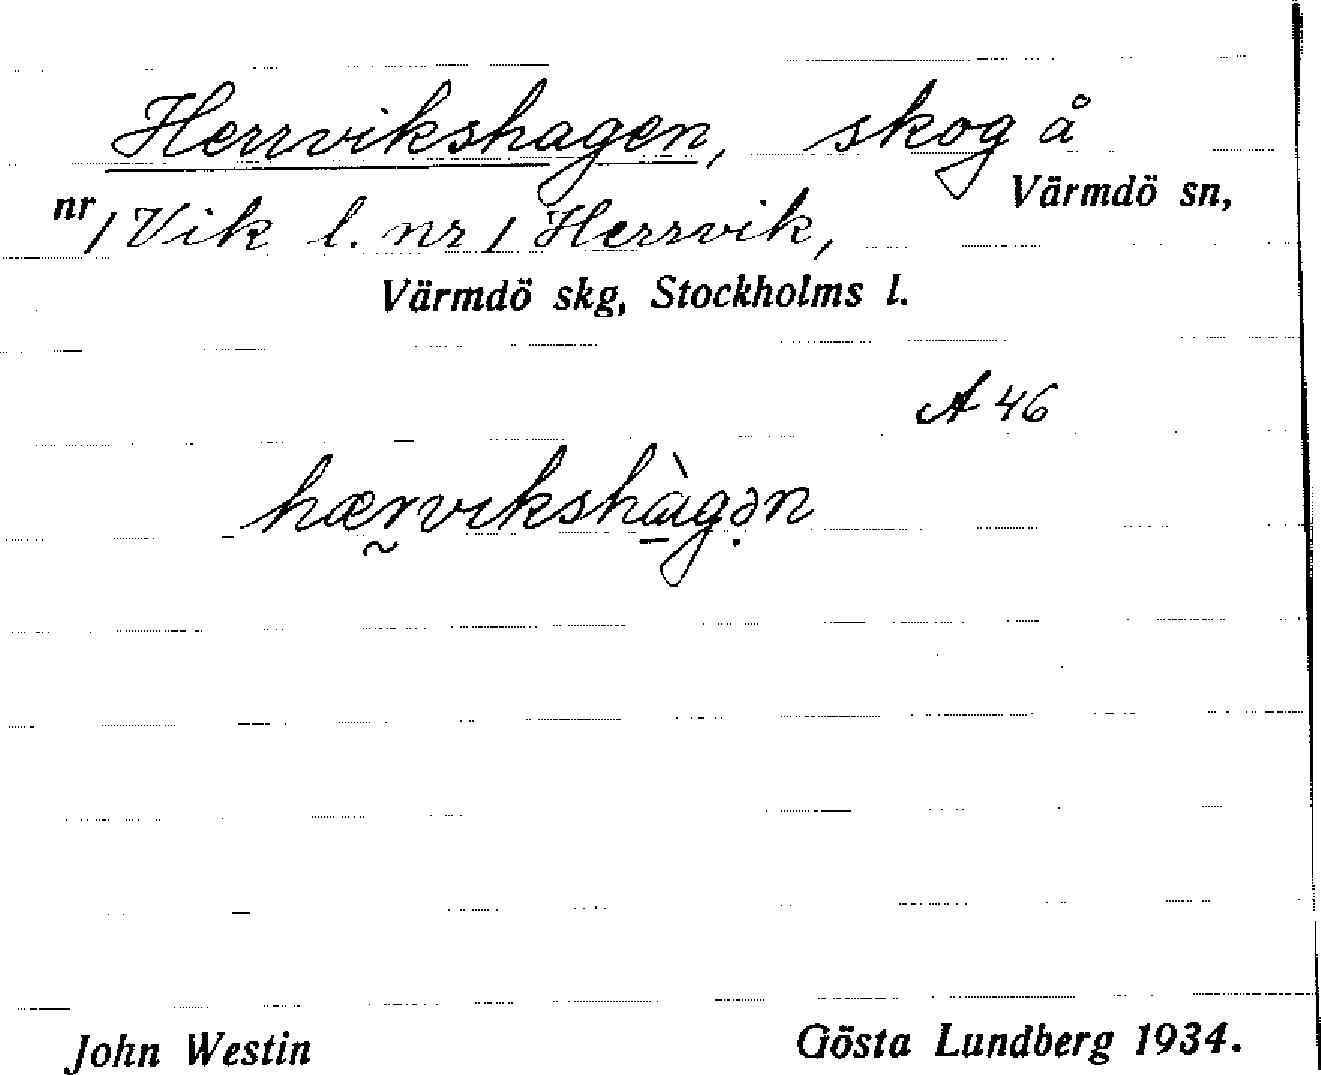 Herrvikshagen, skog å
Värmdö sn,
nr 1 Vik l. nr 1 Herrvik,
Värmdö skg, Stockholms l.
A 46
hærvikshàgən
John Westin
Gösta Lundberg 1934.